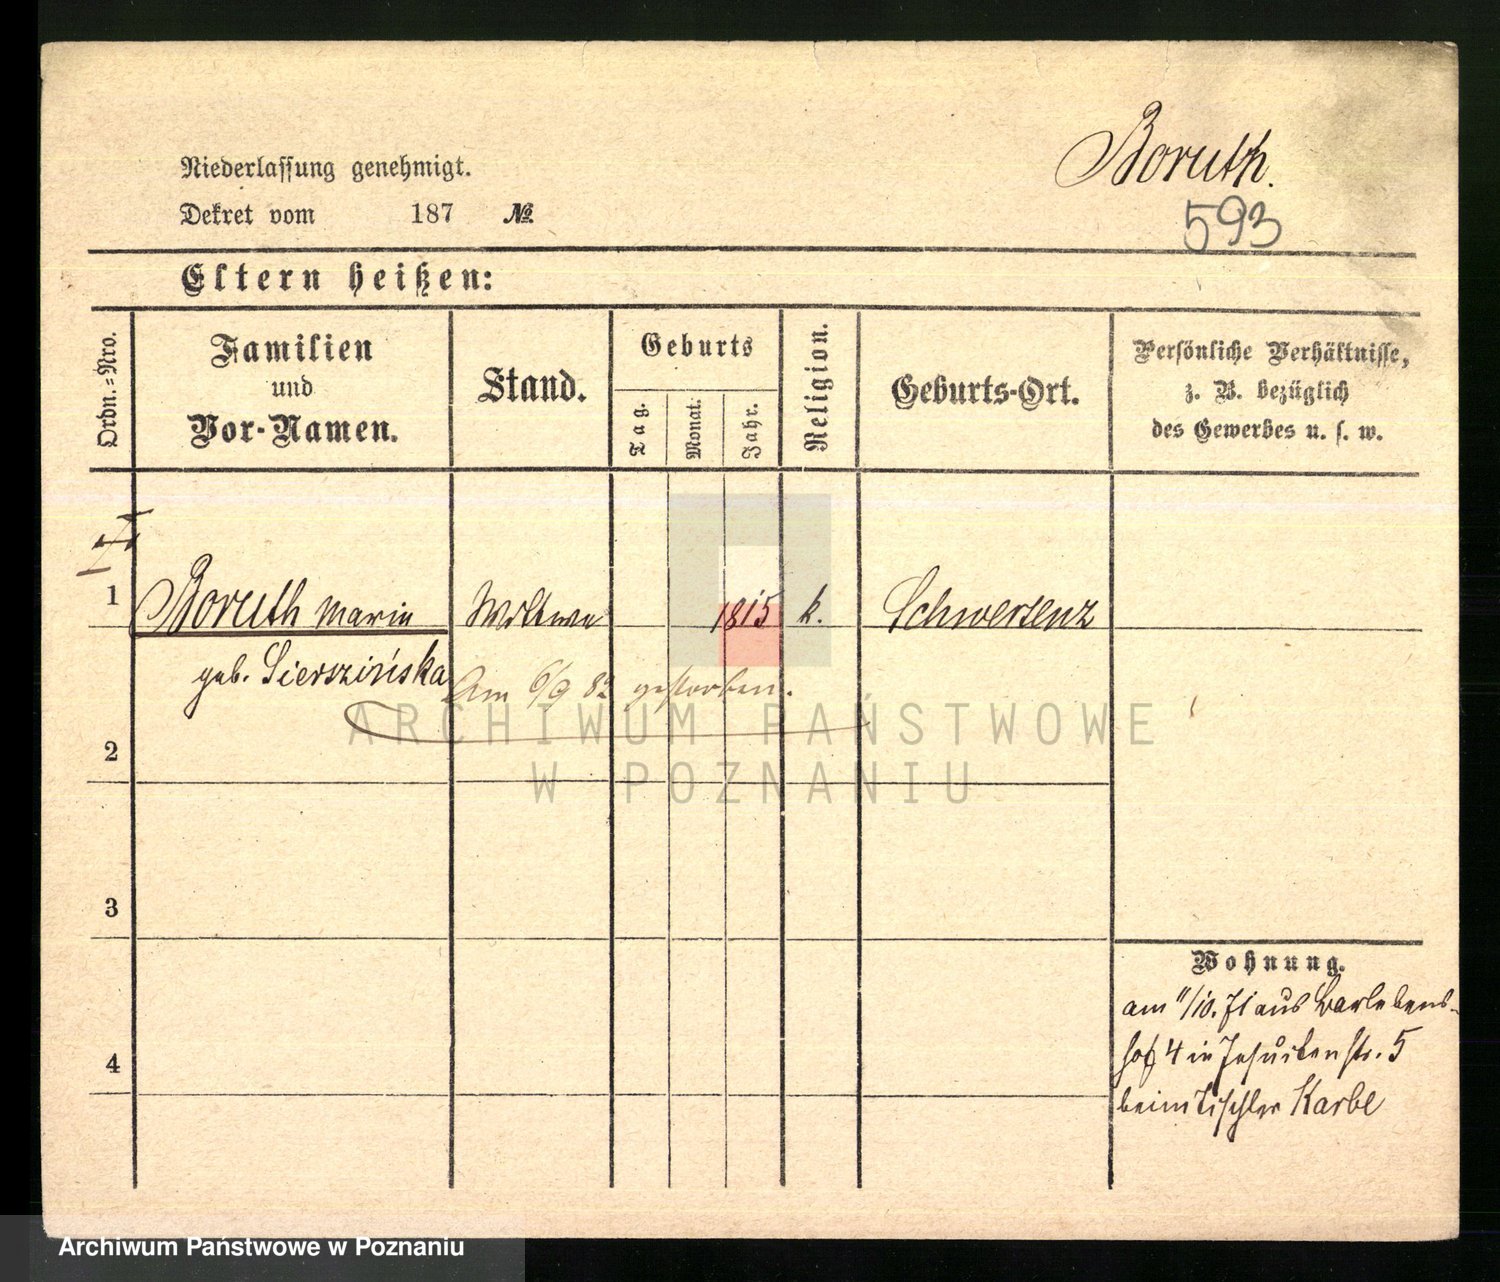 Boruth.
593
Niederlassung genehmigt.
Dekret vom 187 №
Eltern heißen:
Ordn.=Nro.
Familien
und
Vor-Namen.
Stand.
Geburts
Tag.
Monat.
Jahr.
Religion.
Geburts-Ort.
Persönliche Verhältnisse,
z. B. bezüglich
des Gewerbes u. s. w.
1 Boruth Marie Wittwe 1815 k. Schwersenz
geb. Sierszińska Am 6/9 82 gestorben.
ARCHIWUM PAŃSTWOWE
W POZNANIU
2
3
4
Wohnung.
am 11/10. 71 aus Barlebens-
hof 4 in Jesuitenstr. 5
beim Tischler Karbe
Archiwum Państwowe w Poznaniu